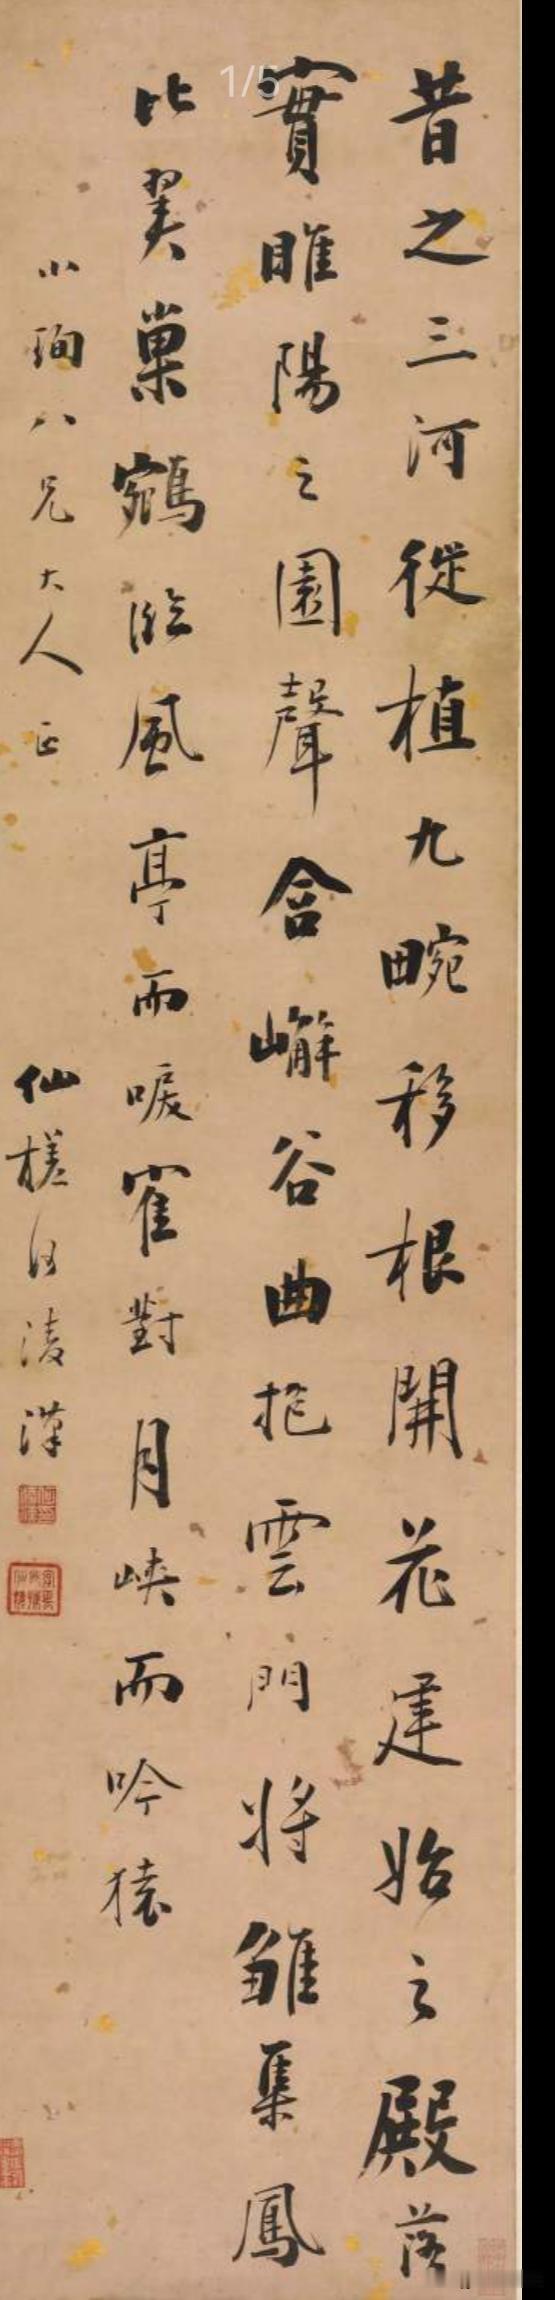 1/5
昔之三河徙植九畹移根開花建始之殿落
實睢陽之園聲含嶰谷曲抱雲門將雛集鳳
比翼巢鵷臨風亭而唳隺對月峽而吟猿
小珣八兄大人正
仙槎何淩漢